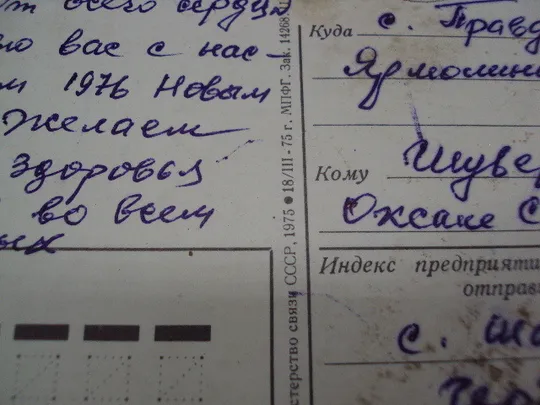 от всего сердца
вас с нас-
1976 Новым
Желаем
здоровья
во всем
ых
стерство связи СССР, 1975 ● 18/III - 75 г. МПФГ. Зак. 14268
Куда с. Правд
Ярмолин
Кому Шуве
Оксане С
Индекс предприяти
отправ
с. Ша